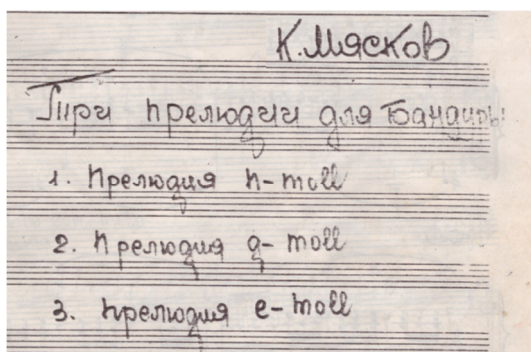 К. Мясков
Три прелюдии для бандуры
1. Прелюдия h-moll
2. Прелюдия g-moll
3. Прелюдия e-moll